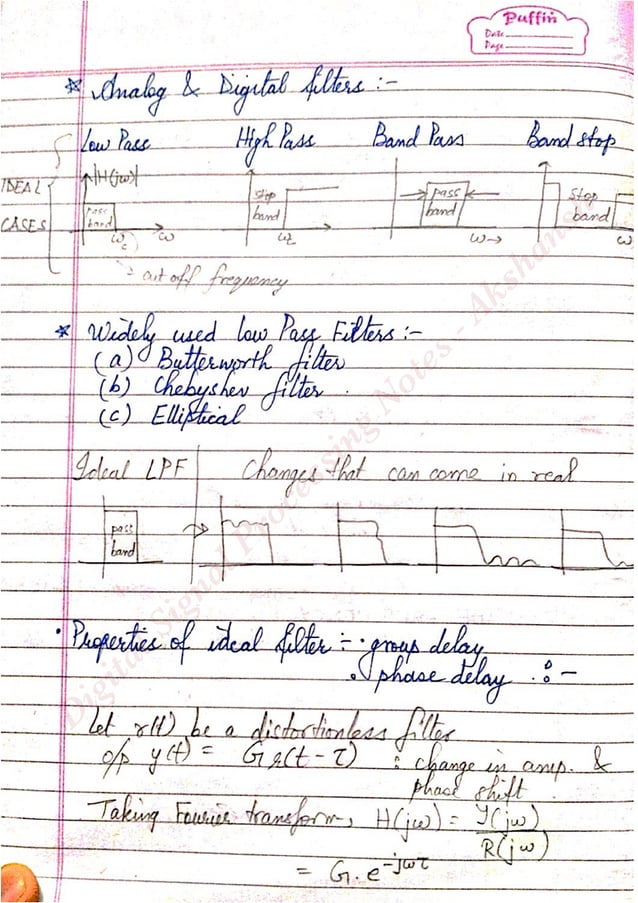 Puffin
Date
Page
* Analog & Digital filters :-
Low Pass High Pass Band Pass Band stop
IDEAL CASES
|H(jω)|
pass band
ωc ω
stop band
ωc
pass band
ω→
Stop band
ω
→ cut off frequency
* Widely used Low Pass Filters :-
(a) Butterworth filter
(b) Chebyshev filter
(c) Elliptical
Ideal LPF Changes that can come in real
pass band
• Properties of ideal filter :- • group delay
• phase delay :-
Let r(t) be a distortionless filter
o/p y(t) = G r(t - τ) : change in amp. &
phase shift
Taking Fourier transform, H(jω) = Y(jω)/R(jω)
= G. e^-jωτ
Digital Signal Processing Notes - Akshansh